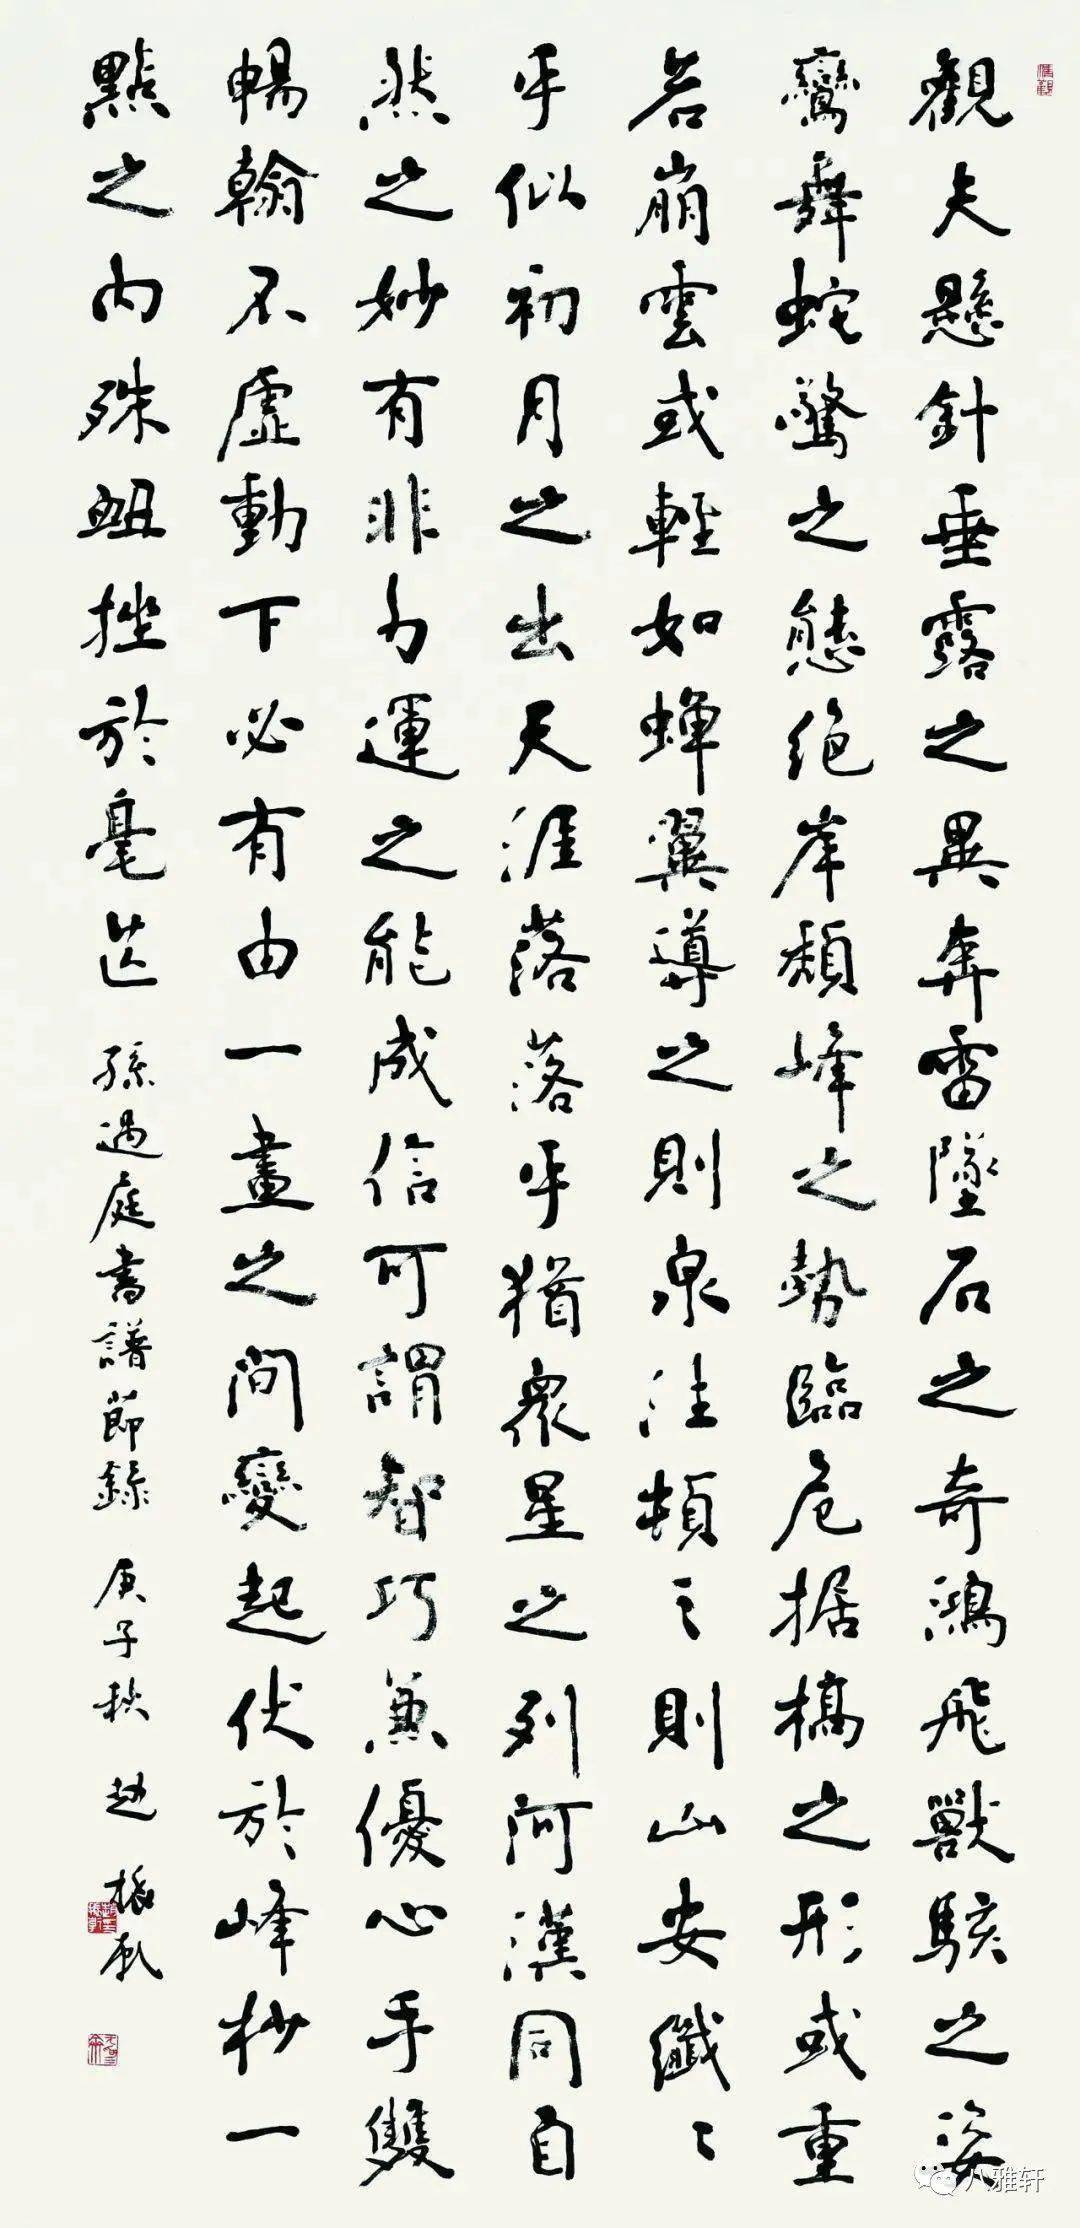 觀夫懸針垂露之異奔雷墜石之奇鴻飛獸駭之姿
鸞舞蛇驚之態絕岸頹峰之勢臨危据槁之形或重
若崩雲或輕如蟬翼導之則泉注頓之則山安纖々
乎似初月之出天涯落落乎猶眾星之列河漢同自
然之妙有非力運之能成信可謂智巧兼優心手雙
暢翰不虛動下必有由一畫之間變起伏於峰杪一
點之內殊衄挫於毫芒 孫過庭書譜節錄 庚子秋 趙振乾
八雅轩